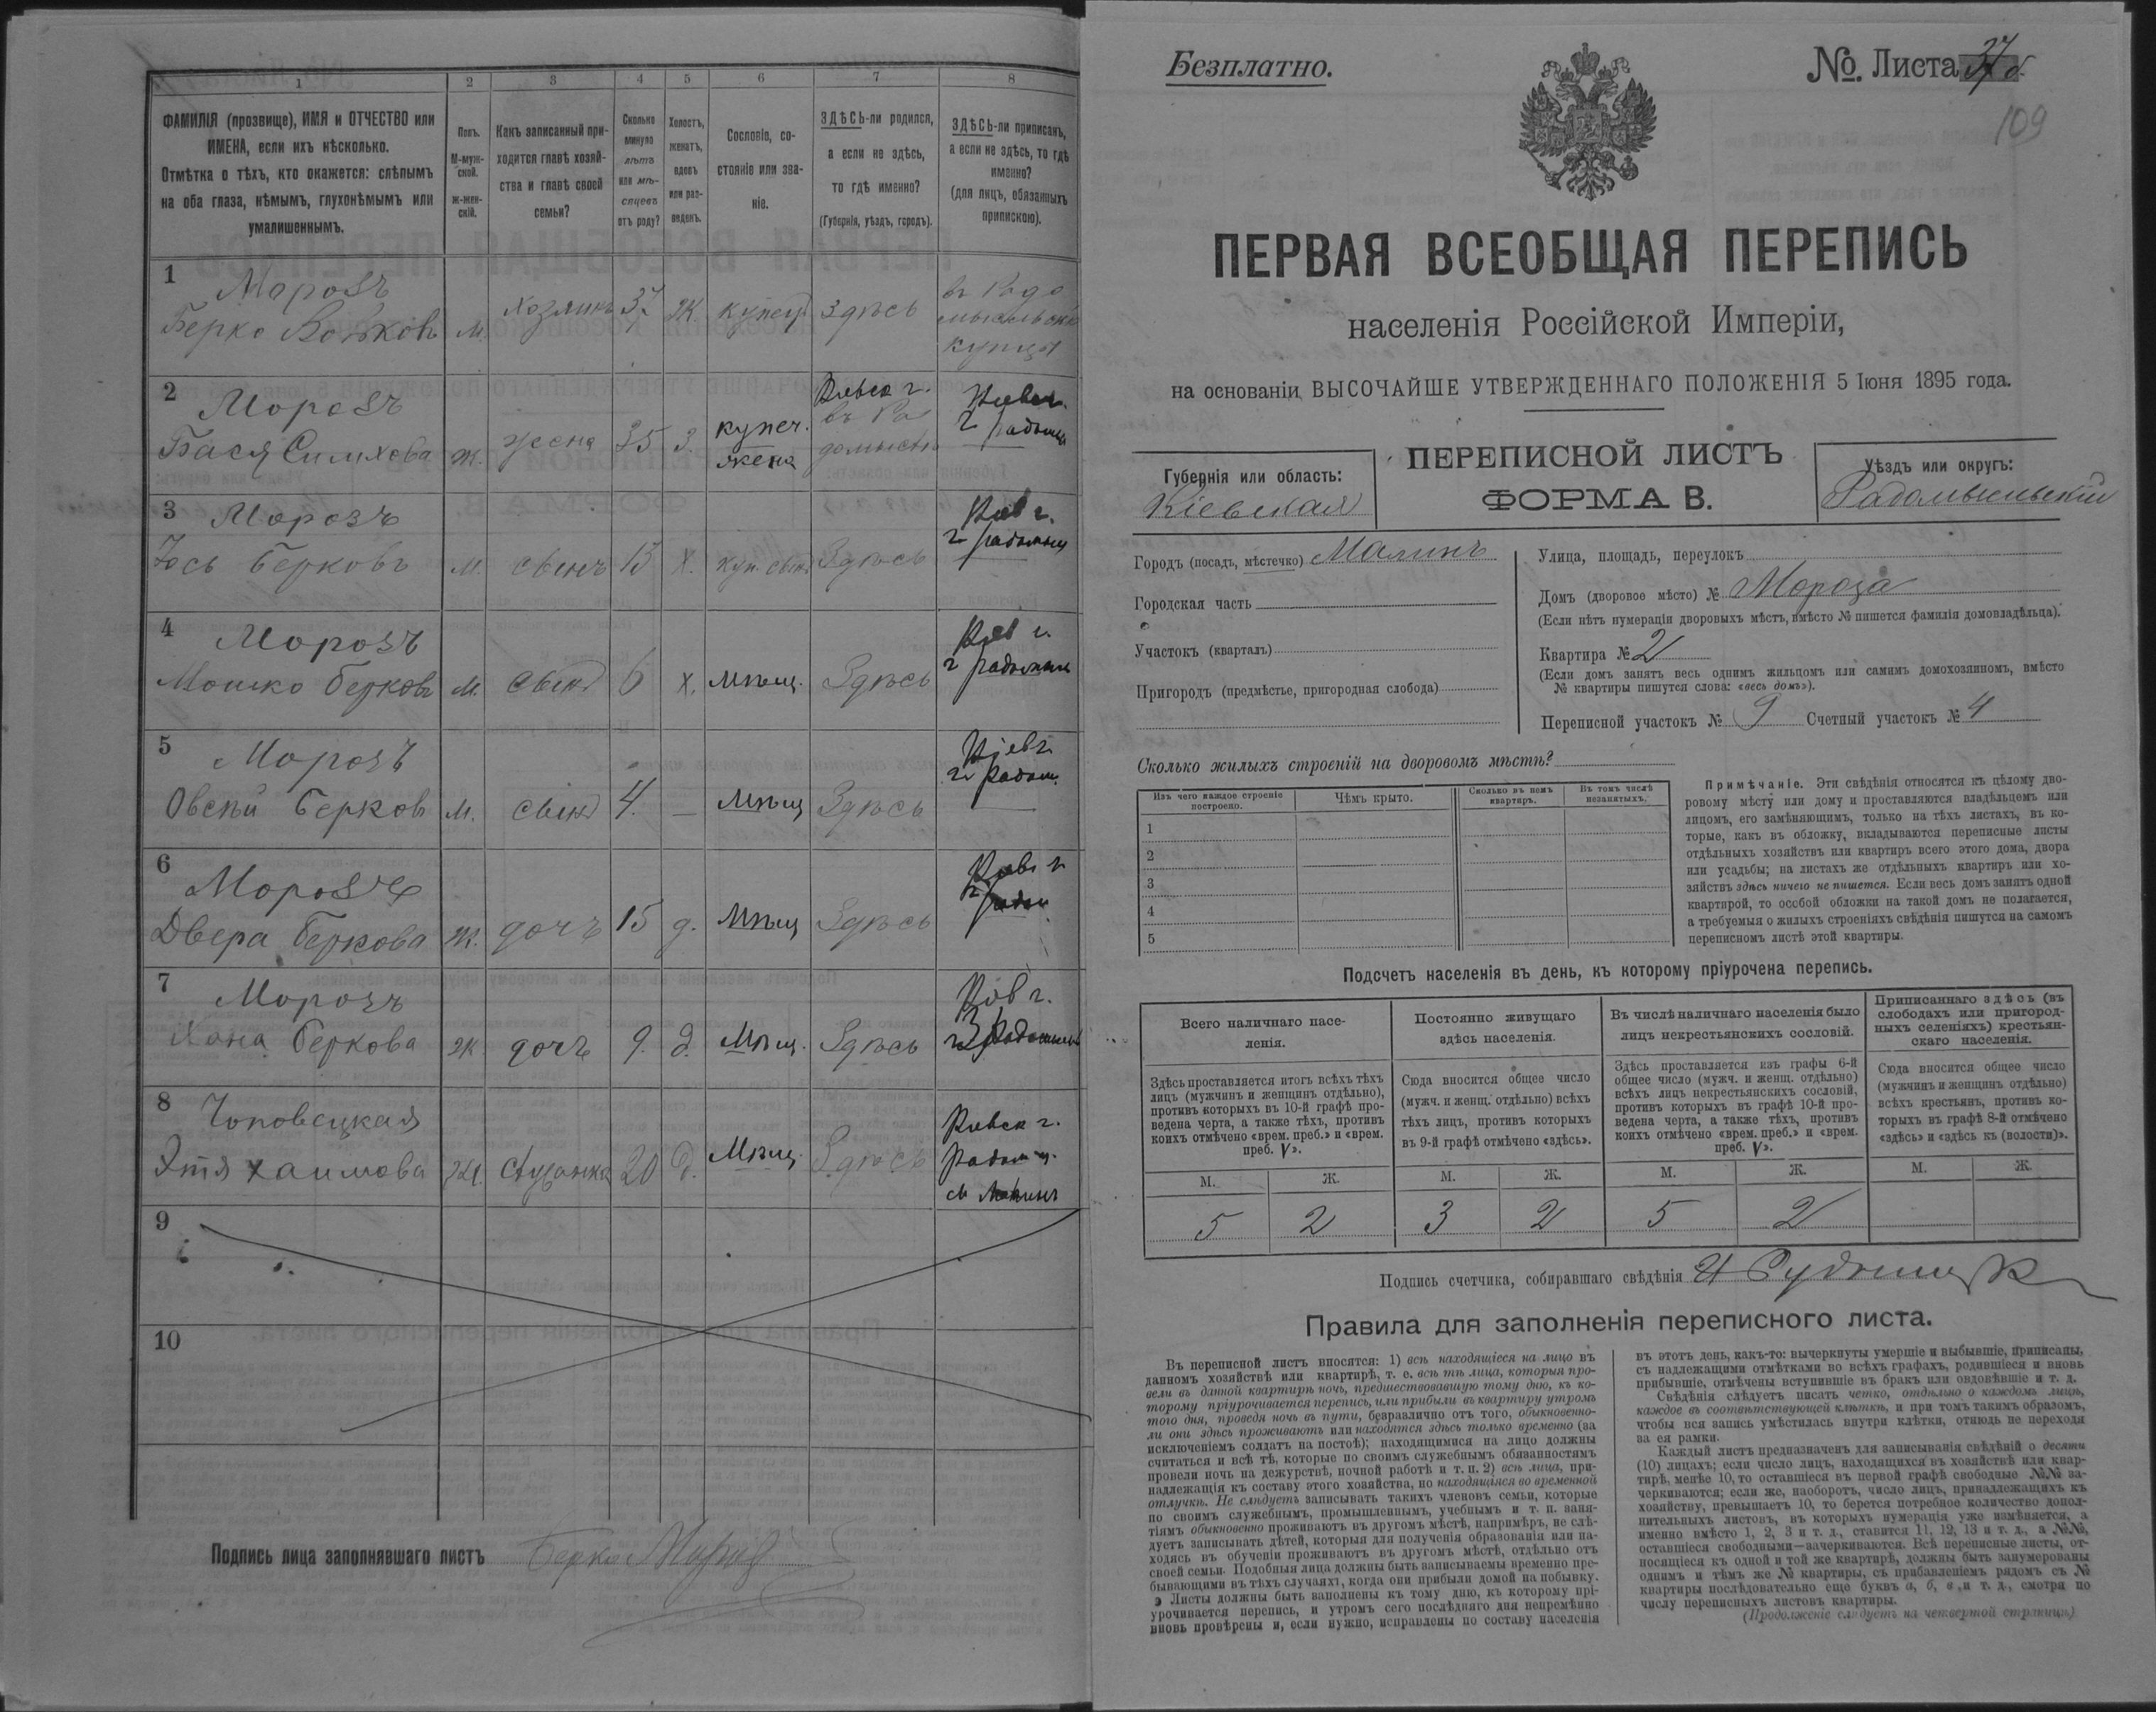 1 2 3 4 5 6 7 8
ФАМИЛІЯ (прозвище), ИМЯ и ОТЧЕСТВО или
ИМЕНА, если ихъ нѣсколько.
Отмѣтка о тѣхъ, кто окажется: слѣпымъ
на оба глаза, нѣмымъ, глухонѣмымъ или
умалишеннымъ.
Полъ.
М-муж-
ской.
ж-жен-
скій.
Какъ записанный при-
ходится главѣ хозяй-
ства и главѣ своей
семьи?
Сколько
минуло
лѣтъ
или мѣ-
сяцевъ
отъ роду?
Холостъ,
женатъ,
вдовъ
или раз-
веденъ.
Сословіе, со-
стояніе или зва-
ніе.
ЗДѢСЬ-ли родился,
а если не здѣсь,
то гдѣ именно?
(Губернія, уѣздъ, городъ).
ЗДѢСЬ-ли приписанъ,
а если не здѣсь, то гдѣ
именно?
(для лицъ, обязанныхъ
припискою).
1 Морозъ
Берко Вольковъ м. хозяинъ 37 ж. купец здѣсь
купцы
2 Морозъ
Бася Симхова ж. жена 35 з. купеч. жена
3 Морозъ
Іось Берковъ м. сынъ 13 х. куп. сынъ Здѣсь
4 Морозъ
Мошко Берковъ м. сынъ 6 х. мѣщ. Здѣсь
5 Морозъ
Овсѣй Берков м. сынъ 4. — мѣщ Здѣсь
6 Морозъ
Двера Беркова ж. дочь 15 д. мѣщ Здѣсь
7 Морозъ
Хана Беркова ж. дочь 9. д. мѣщ. Здѣсь
8 Чоповецкая
Этя Хаимова ж. служанка 20 д. мѣщ. Здѣсь
9
10
Подпись лица заполнявшаго листъ Берко Мороз
Безплатно.
№. Листа 37 б.
109
ПЕРВАЯ ВСЕОБЩАЯ ПЕРЕПИСЬ
населенія Россійской Имперіи,
на основаніи ВЫСОЧАЙШЕ УТВЕРЖДЕННАГО ПОЛОЖЕНІЯ 5 Іюня 1895 года.
Губернія или область:
Кіевская
ПЕРЕПИСНОЙ ЛИСТЪ
ФОРМА В.
Уѣздъ или округъ:
Радомысльскій
Городъ (посадъ, мѣстечко) Малинъ
Городская часть
Участокъ (кварталъ)
Пригородъ (предмѣстье, пригородная слобода)
Улица, площадь, переулокъ
Домъ (дворовое мѣсто) № Мороза
(Если нѣтъ нумераціи дворовыхъ мѣстъ, вмѣсто № пишется фамилія домовладѣльца).
Квартира № 2
(Если домъ занятъ весь однимъ жильцомъ или самимъ домохозяиномъ, вмѣсто
№ квартиры пишутся слова: «весь домъ»).
Переписной участокъ № 9 Счетный участокъ № 4
Сколько жилыхъ строеній на дворовомъ мѣстѣ?
Изъ чего каждое строеніе
построено.
Чѣмъ крыто.
Сколько въ немъ
квартиръ.
Въ томъ числѣ
незанятыхъ.
1
2
3
4
5
Примѣчаніе. Эти свѣдѣнія относятся къ цѣлому дво-
ровому мѣсту или дому и проставляются владѣльцемъ или
лицомъ, его замѣняющимъ, только на тѣхъ листахъ, въ ко-
торые, какъ въ обложку, вкладываются переписные листы
отдѣльныхъ хозяйствъ или квартиръ всего этого дома, двора
или усадьбы; на листахъ же отдѣльныхъ квартиръ или хо-
зяйствъ здѣсь ничего не пишется. Если весь домъ занятъ одной
квартирой, то особой обложки на такой домъ не полагается,
а требуемыя о жилыхъ строеніяхъ свѣдѣнія пишутся на самомъ
переписномъ листѣ этой квартиры.
Подсчетъ населенія въ день, къ которому пріурочена перепись.
Всего наличнаго насе-
ленія.
Постоянно живущаго
здѣсь населенія.
Въ числѣ наличнаго населенія было
лицъ некрестьянскихъ сословій.
Приписаннаго здѣсь (въ
слободахъ или пригород-
ныхъ селеніяхъ) крестьян-
скаго населенія.
Здѣсь проставляется итогъ всѣхъ тѣхъ
лицъ (мужчинъ и женщинъ отдѣльно),
противъ которыхъ въ 10-й графѣ про-
ведена черта, а также тѣхъ, противъ
коихъ отмѣчено «врем. преб.» и «врем.
преб. V».
Сюда вносится общее число
(мужч. и женщ. отдѣльно) всѣхъ
тѣхъ лицъ, противъ которыхъ
въ 9-й графѣ отмѣчено «здѣсь».
Здѣсь проставляется изъ графы 6-й
общее число (мужч. и женщ. отдѣльно)
всѣхъ лицъ некрестьянскихъ сословій,
противъ которыхъ въ графѣ 10-й про-
ведена черта, а также тѣхъ, противъ
коихъ отмѣчено «врем. преб.» и «врем.
преб. V».
Сюда вносится общее число
(мужчинъ и женщинъ отдѣльно)
всѣхъ крестьянъ, противъ ко-
торыхъ въ графѣ 8-й отмѣчено
«здѣсь» и «здѣсь къ (волости)».
М. Ж. М. Ж. М. Ж. М. Ж.
5 2 3 2 5 2
Подпись счетчика, собиравшаго свѣдѣнія
Правила для заполненія переписного листа.
Въ переписной листъ вносятся: 1) всѣ находящіеся на лицо въ
данномъ хозяйствѣ или квартирѣ, т. е. всѣ тѣ лица, которыя про-
вели въ данной квартирѣ ночь, предшествовавшую тому дню, къ ко-
торому пріурочивается перепись, или прибыли въ квартиру утромъ
того дня, проведя ночь въ пути, безразлично отъ того, обыкновенно-
ли они здѣсь проживаютъ или находятся здѣсь только временно (за
исключеніемъ солдатъ на постоѣ); находящимися на лицо должны
считаться и всѣ тѣ, которые по своимъ служебнымъ обязанностямъ
провели ночь на дежурствѣ, ночной работѣ и т. п. 2) всѣ лица, при-
надлежащія къ составу этого хозяйства, но находящіяся во временной
отлучкѣ. Не слѣдуетъ записывать такихъ членовъ семьи, которые
по своимъ служебнымъ, промышленнымъ, учебнымъ и т. п. заня-
тіямъ обыкновенно проживаютъ въ другомъ мѣстѣ, напримѣръ, не слѣ-
дуетъ записывать дѣтей, которыя для полученія образованія или на-
ходясь въ обученіи проживаютъ въ другомъ мѣстѣ, отдѣльно отъ
своей семьи. Подобныя лица должны быть записываемы временно пре-
бывающими въ тѣхъ случаяхъ, когда они прибыли домой на побывку.
Листы должны быть заполнены къ тому дню, къ которому прі-
урочивается перепись, и утромъ сего послѣдняго дня непремѣнно
вновь провѣрены и, если нужно, исправлены по составу населенія
въ этотъ день, какъ-то: вычеркнуты умершіе и выбывшіе, приписаны,
съ надлежащими отмѣтками во всѣхъ графахъ, родившіеся и вновь
прибывшіе, отмѣчены вступившіе въ бракъ или овдовѣвшіе и т. д.
Свѣдѣнія слѣдуетъ писать четко, отдѣльно о каждомъ лицѣ,
каждое въ соотвѣтствующей клѣткѣ, и при томъ такимъ образомъ,
чтобы вся запись умѣстилась внутри клѣтки, отнюдь не переходя
за ея рамки.
Каждый листъ предназначенъ для записыванія свѣдѣній о десяти
(10) лицахъ; если число лицъ, находящихся въ хозяйствѣ или квар-
тирѣ, менѣе 10, то оставшіеся въ первой графѣ свободные №№ за-
черкиваются; если же, наоборотъ, число лицъ, принадлежащихъ къ
хозяйству, превышаетъ 10, то берется потребное количество допол-
нительныхъ листовъ, въ которыхъ нумерація уже измѣняется, а
именно вмѣсто 1, 2, 3 и т. д., ставится 11, 12, 13 и т. д., а №№,
оставшіеся свободными—зачеркиваются. Всѣ переписные листы, от-
носящіеся къ одной и той же квартирѣ, должны быть занумерованы
однимъ и тѣмъ же № квартиры, съ прибавленіемъ рядомъ съ №
квартиры послѣдовательно еще буквъ а, б, в, и т. д., смотря по
числу переписныхъ листовъ квартиры.
(Продолженіе слѣдуетъ на четвертой страницѣ)